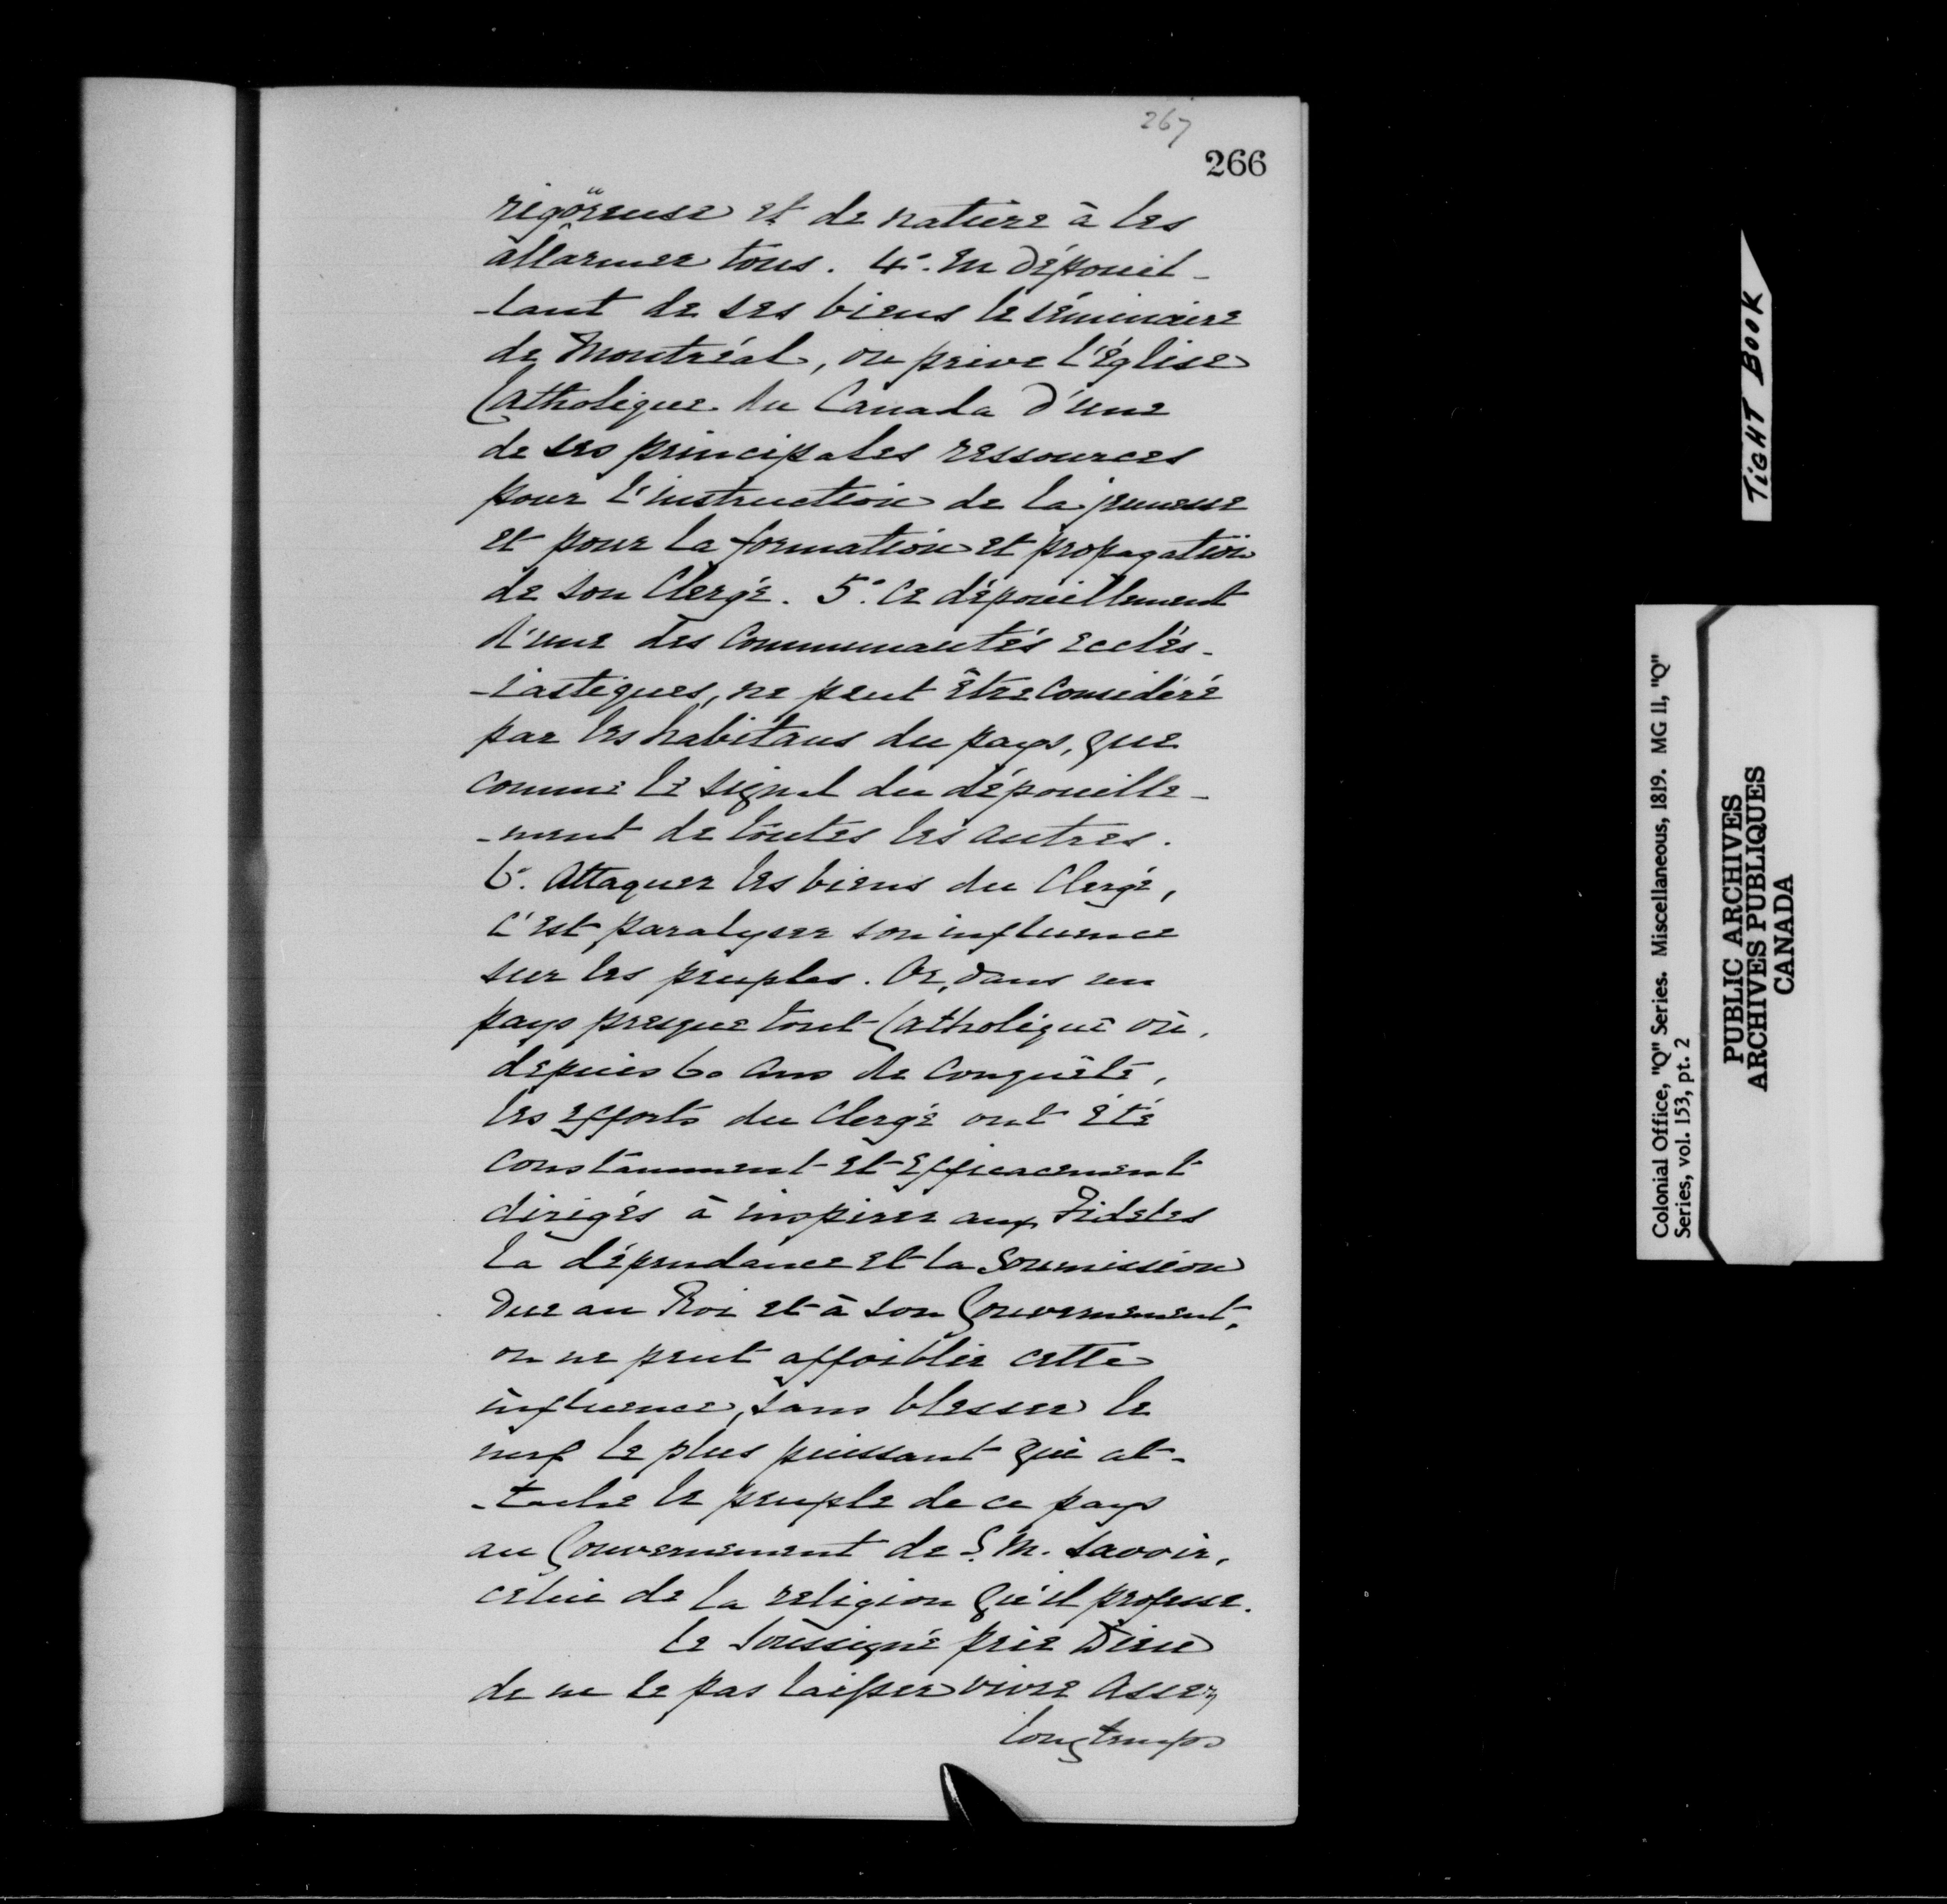 267
266
rigöreuse et de nature à les
allarmer tous. 4°. En dépouil-
-lant de ses biens le séminaire
de Montréal, on prive l'église
Catholique du Canada d'une
de ses principales ressources
pour l'instruction de la jeunesse
et pour la formation et propagation
de son Clergé. 5°. Ce dépouillement
d'une des Communautés ecclés-
-iastiques, ne peut être considéré
par les habitans du pays, que
comme le signal du dépouille-
-ment de toutes les autres.
6°. Attaquer les biens du Clergé,
c'est paralyser son influence
sur les peuples. Or, dans un
pays presque tout Catholique où,
depuis 60 ans de conquête,
les efforts du Clergé ont été
constamment et efficacement
dirigés à inspirer aux Fideles
la dépendance et la soumission
due au Roi et à son Gouvernement,
on ne peut affoiblir cette
influence, sans blesser le
nerf le plus puissant qui at-
-tache le peuple de ce pays
au Gouvernement de S. M. savoir,
celui de la religion qu'il professe.
Le Soussigné prie Dieu
de ne le pas laisser vivre assez
longtemps
TIGHT BOOK
Colonial Office, "Q" Series. Miscellaneous, 1819. MG 11, "Q"
Series, vol. 153, pt. 2
PUBLIC ARCHIVES
ARCHIVES PUBLIQUES
CANADA